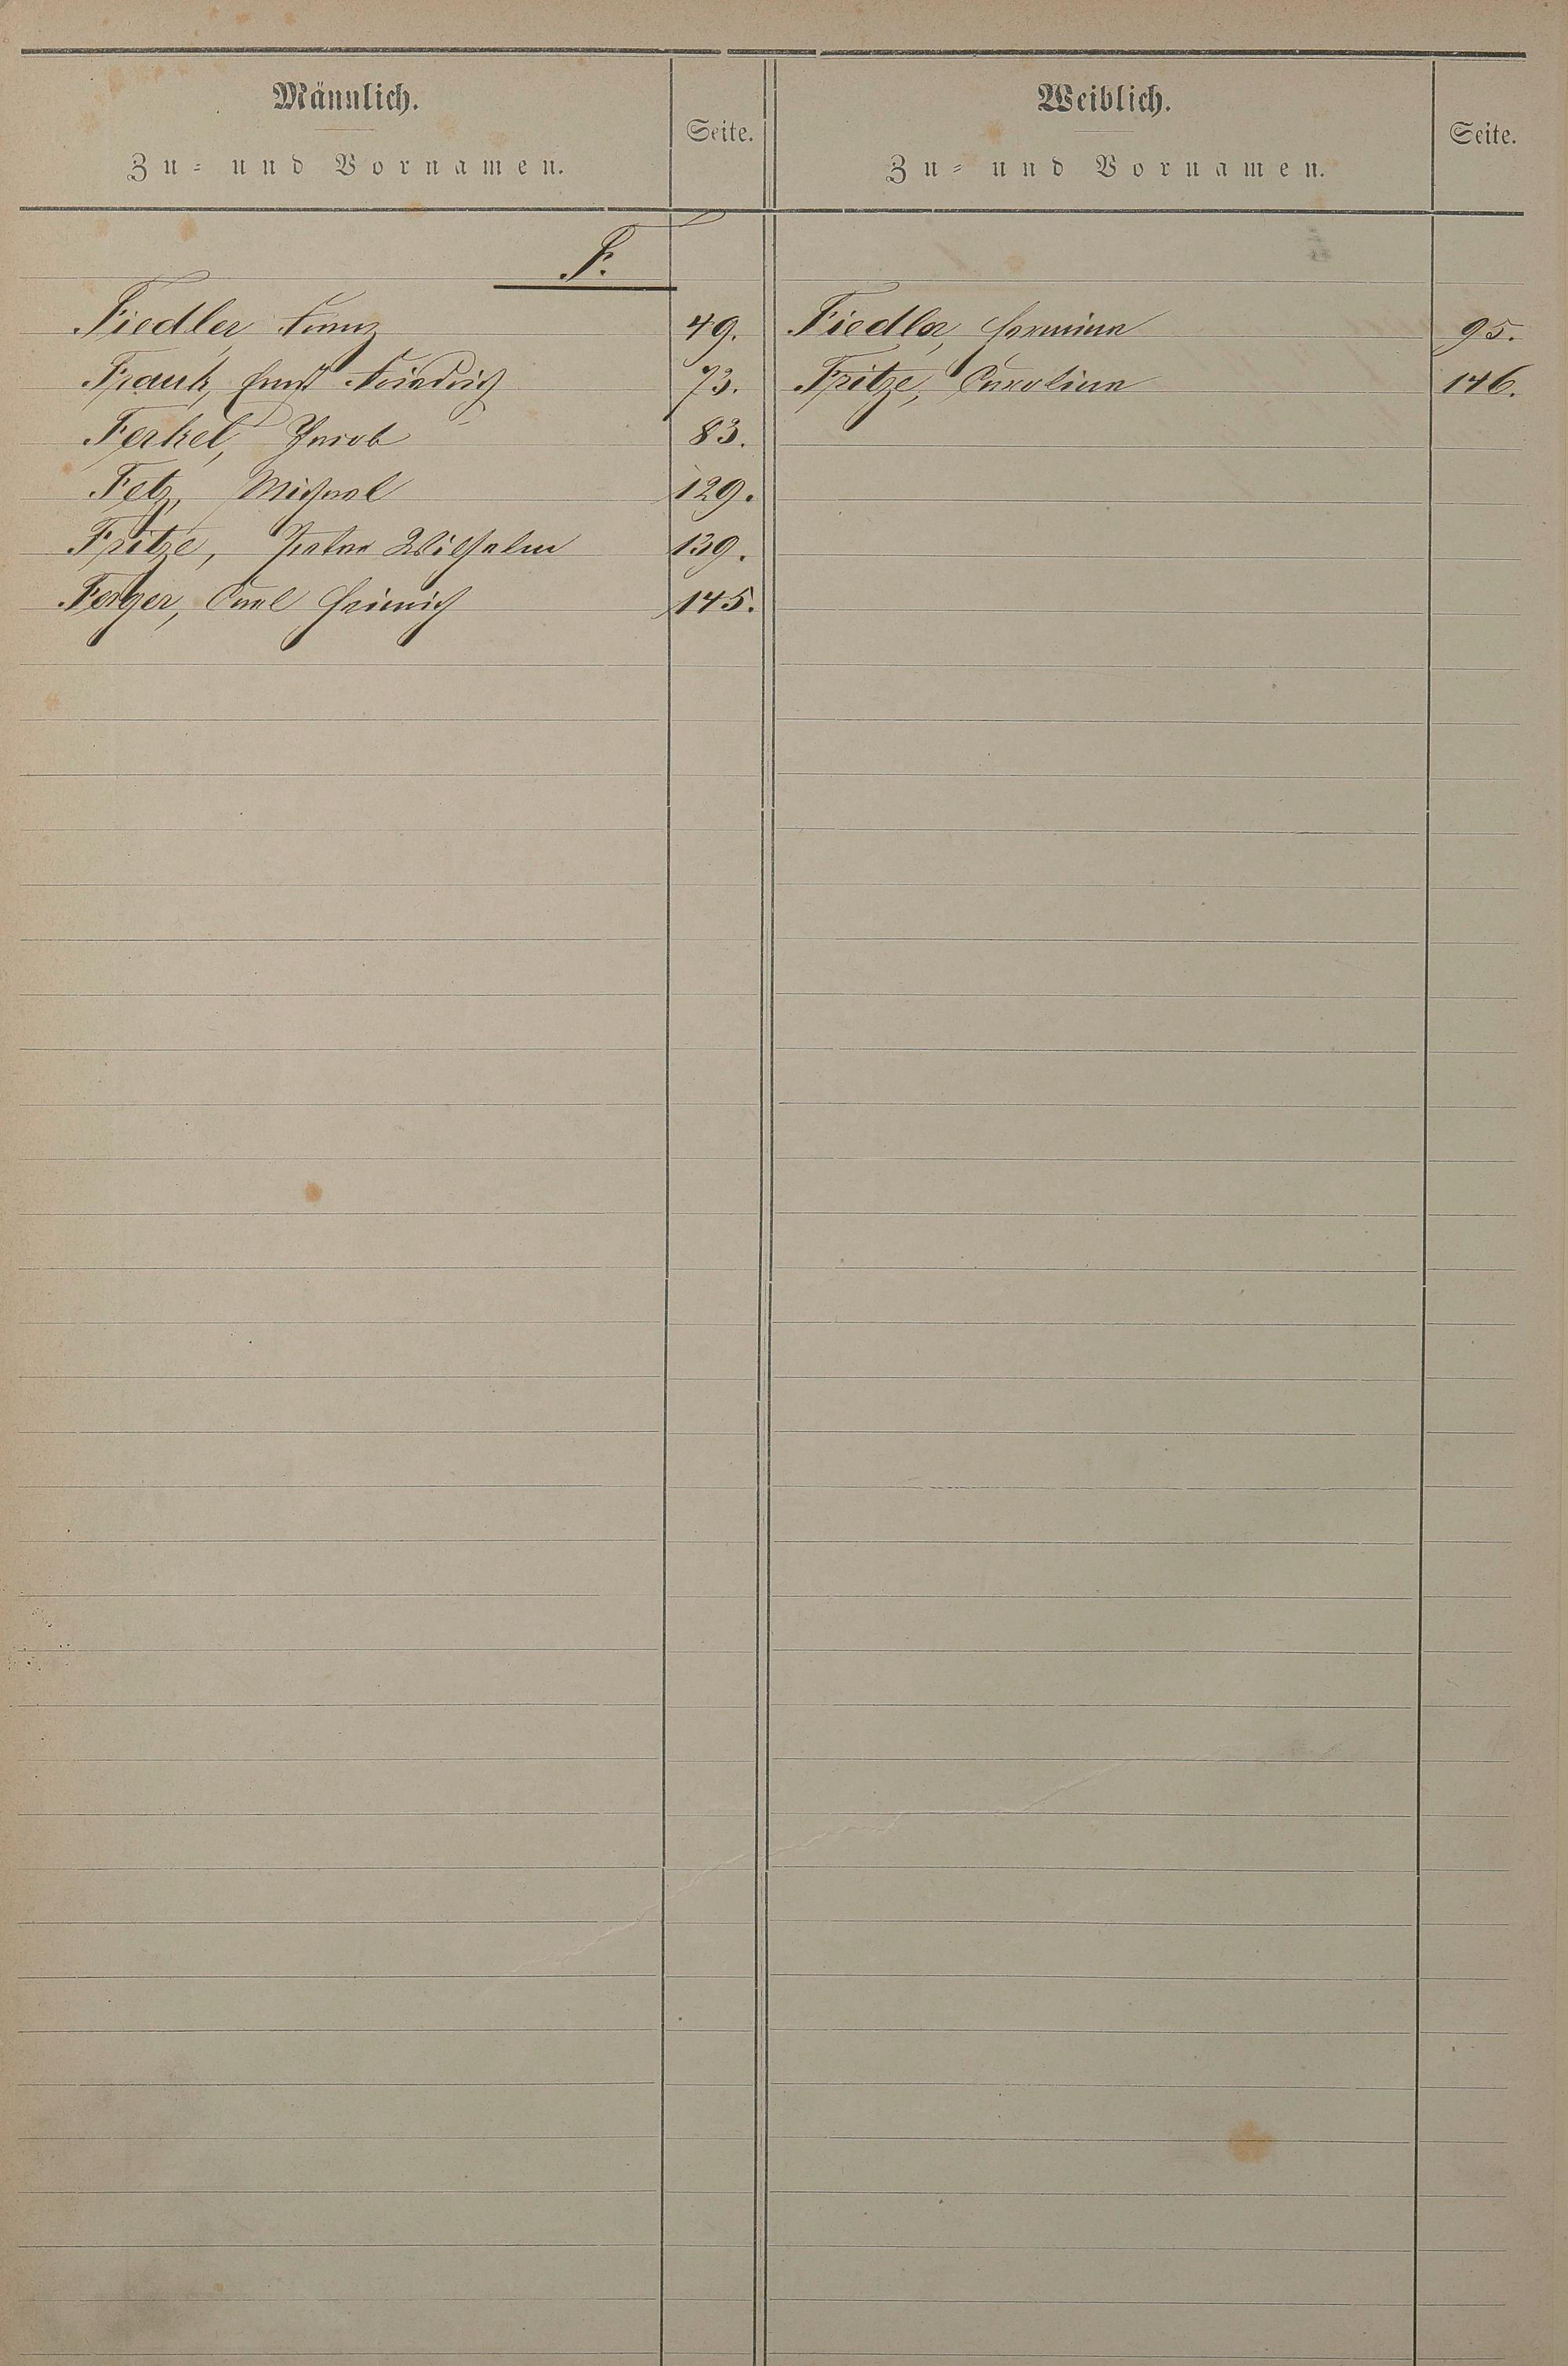 Männlich.
Zu- und Vornamen.
Seite.
Weiblich.
Zu- und Vornamen.
Seite.
F.
Fiedler, Franz 49.
Frank, Ernst Friedrich 73.
Ferkel, Jacob 83.
Fetz, Michael 129.
Fritze, Peter Wilhelm 139.
Ferger, Carl Heinrich 145.
Fiedler, Hermine 95.
Fritze, Caroline 146.